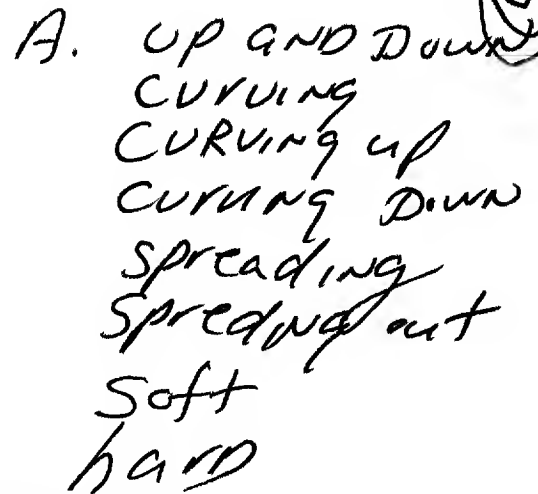 A. UP AND DOWN
CURVING
CURVING up
CURVING DOWN
Spreading
Spreding out
Soft
harD